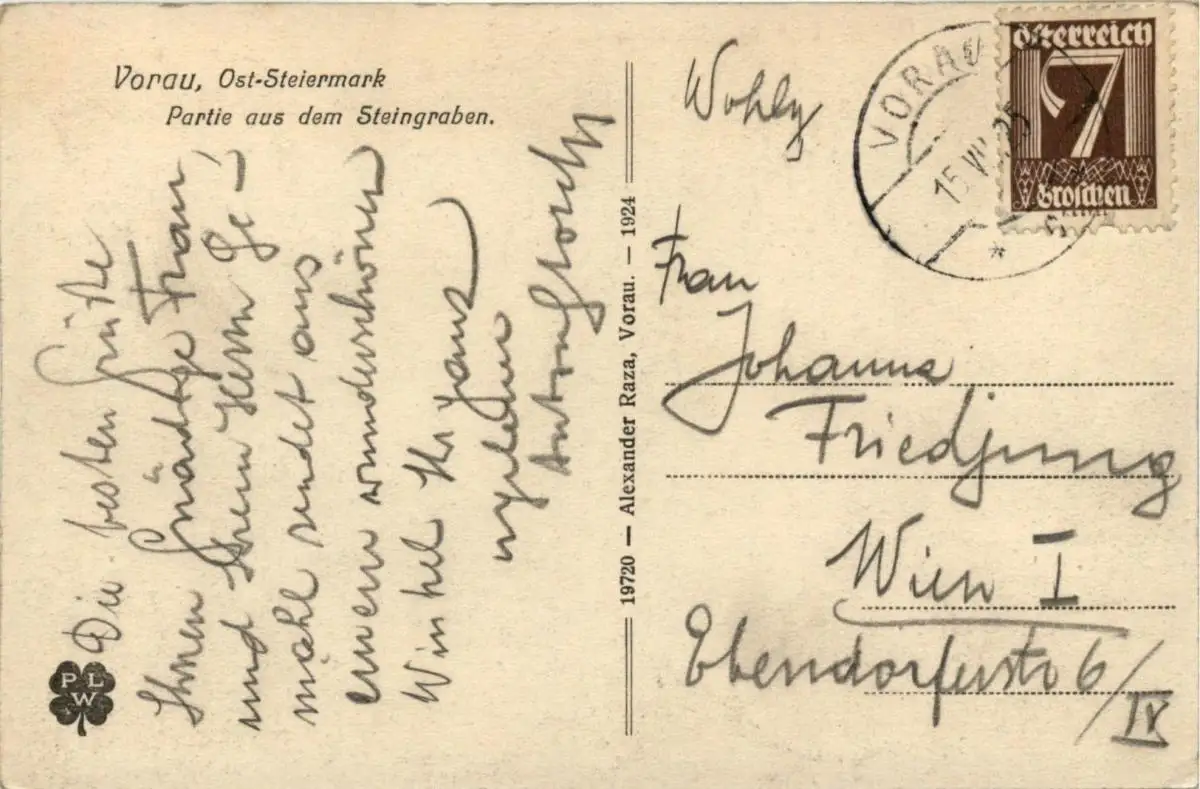 Vorau, Ost-Steiermark
Partie aus dem Steingraben.
Die besten Grüße
Ihnen Gnädige Frau
und Ihren Herrn Ge-
mahl sendet aus
einem wunderschönen
Winkel Ihr ganz
ergebener
Anton
19720 — Alexander Raza, Vorau. — 1924
PLW
VORAU
15.VII.25
österreich
7
Groschen
Wohlg
Frau
Johanna
Friedjung
Wien I
Ebendorferstr 6/IV